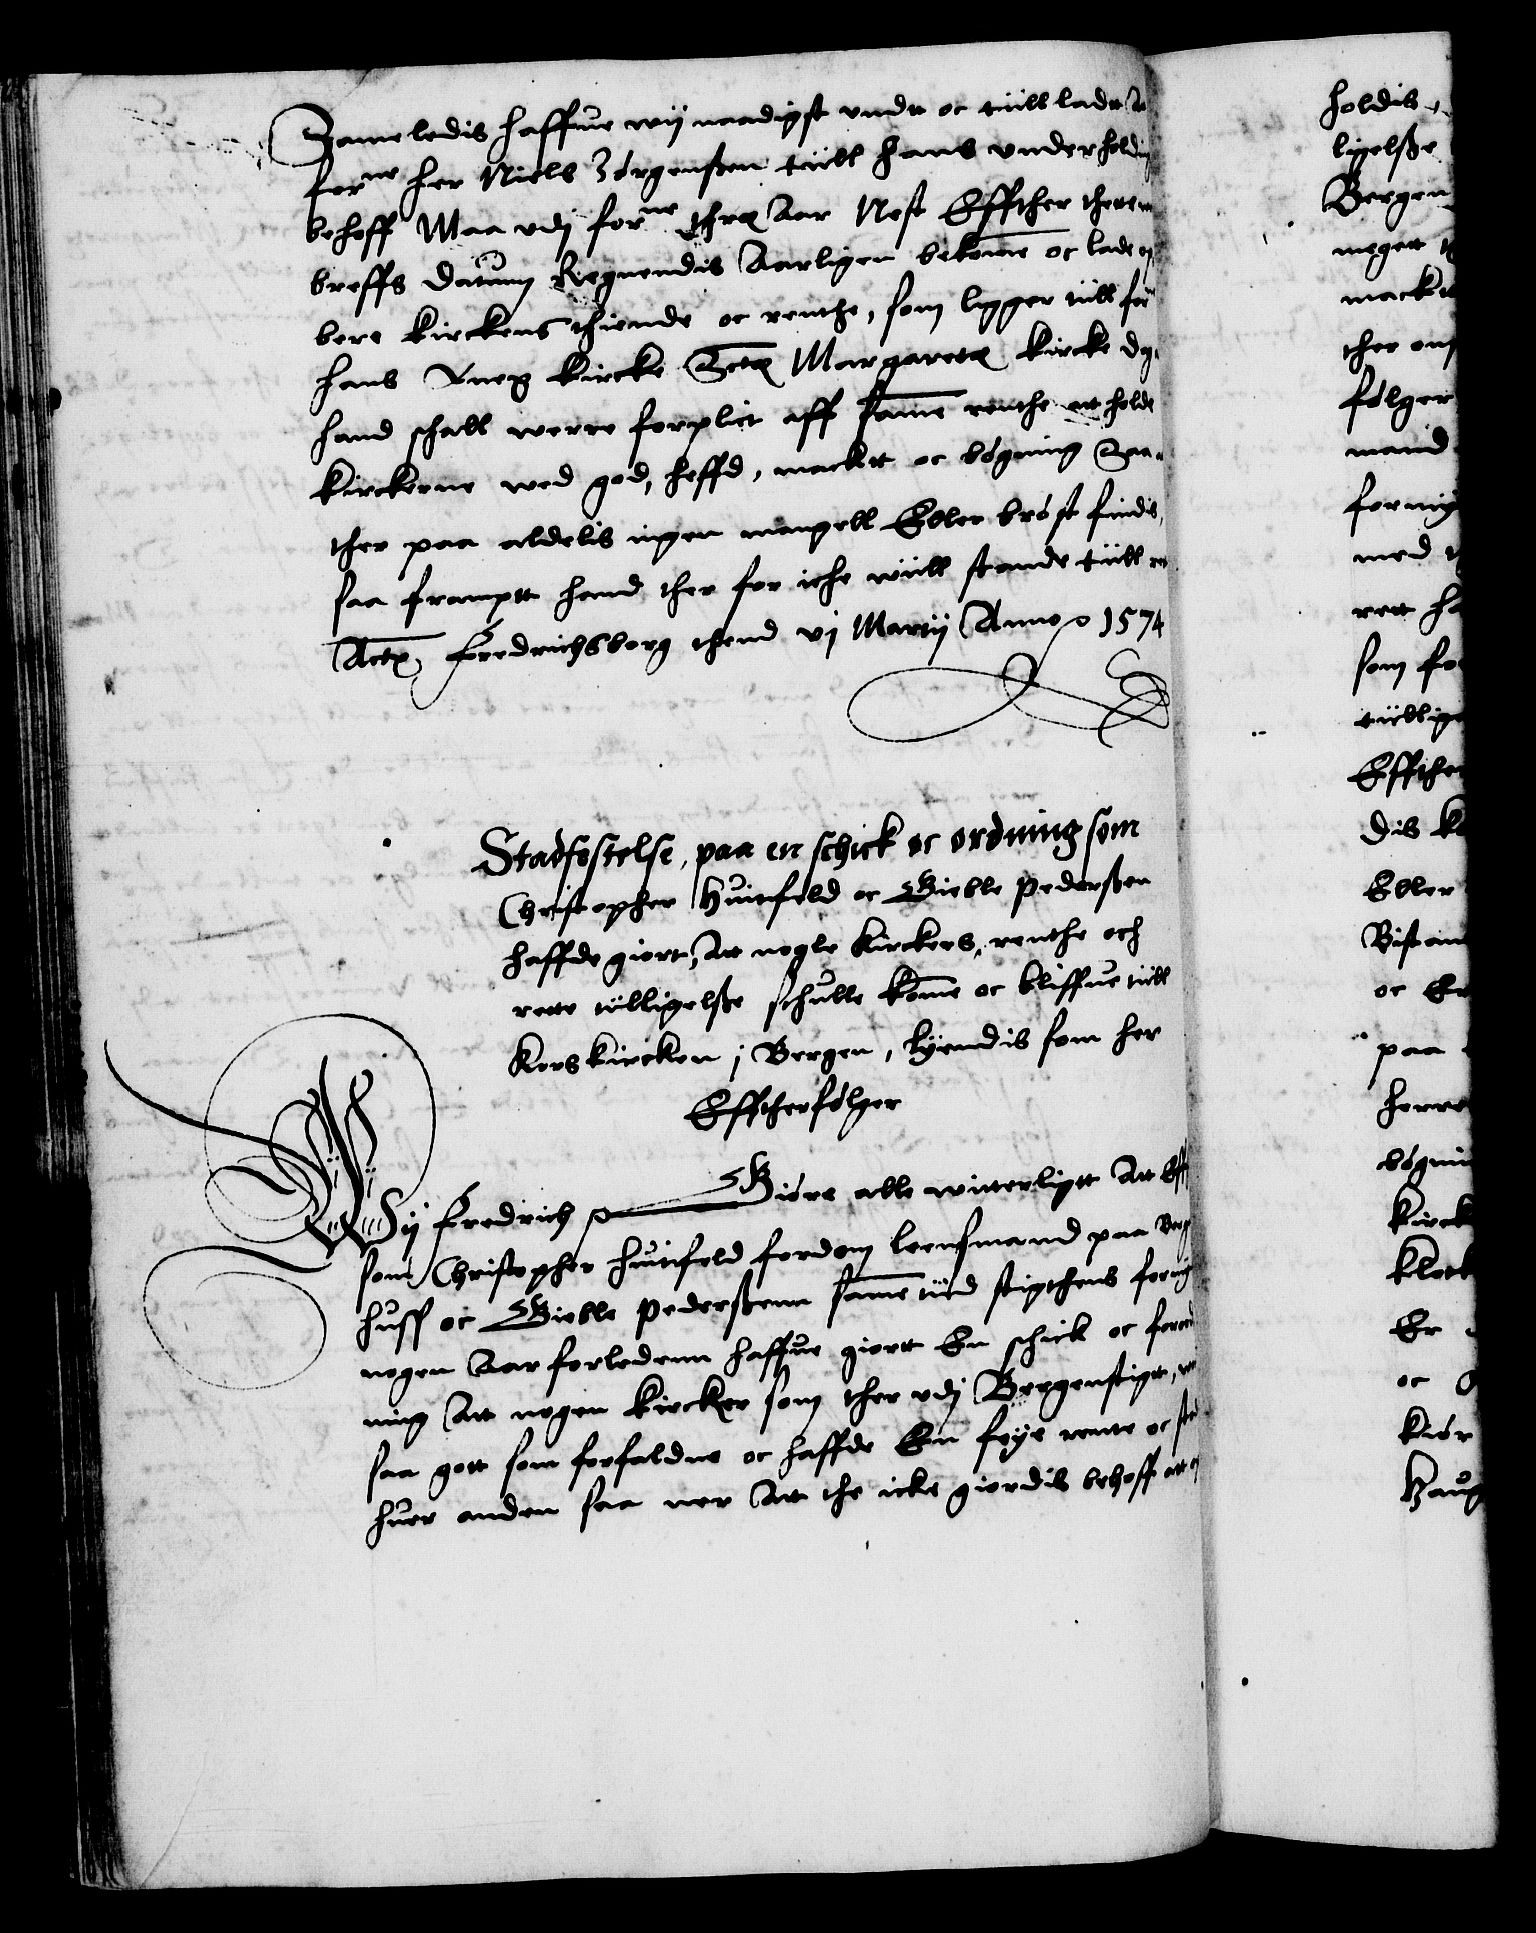 Sameledis haffue wij naadigst undt oc tiill ladt At
forne her Niels Jørgenssen tiill hans underholdn
behoff Maa udj forne thre Aar Nest Effther thette
breffs datum Regnendis Aarligen bekome oc lade op
bere kirckens thiende oc renthe, som ligger till for
hans Anex kircke Sctæ Margaretæ kircke dog
hand schall werre forplict aff same renthe att holde
kirckerne wed god, heffd, mackt oc bögning Saa
ther paa aldelis ingen mangell Eller bröst findis,
saa frampt hand ther for icke wiill stande tiill re
Actx Fredrichsborg thend vj Martij Anno 1574
Stadfestelse, paa en schick oc ordning som
Christopher Huitfeld oc Gieble Pederssen
haffde giort, Att nogle kirckers, renthe och
rette tilligelsse schulle kome oc bliffue tiill
Korskircken j Bergen, lyendis som her
Effther følger
Wij Fredrich Giöre alle witterligtt Att Eff
som Christopher Huitfeld fordom leensmand paa Berg
huss oc Gieble Pederssenn same tiid stigthens forüg
nogen Aar forledenn haffue giortt En schick oc forord
ning Att nogen kircker som ther udj Bergenstigtt,
saa gott som forfaldne oc haffde En føye rente oc
huer anden saa ner Att the icke giordis behoff att
holdis
ligelsse
Bergen
meget
mackt
ther
følger
mand
forny
med
rett
som
tiillige
Effther
dis
Eller
Bistan
oc
paa
herre
bögni
kirck
klock
Er
oc
kiör
Haug